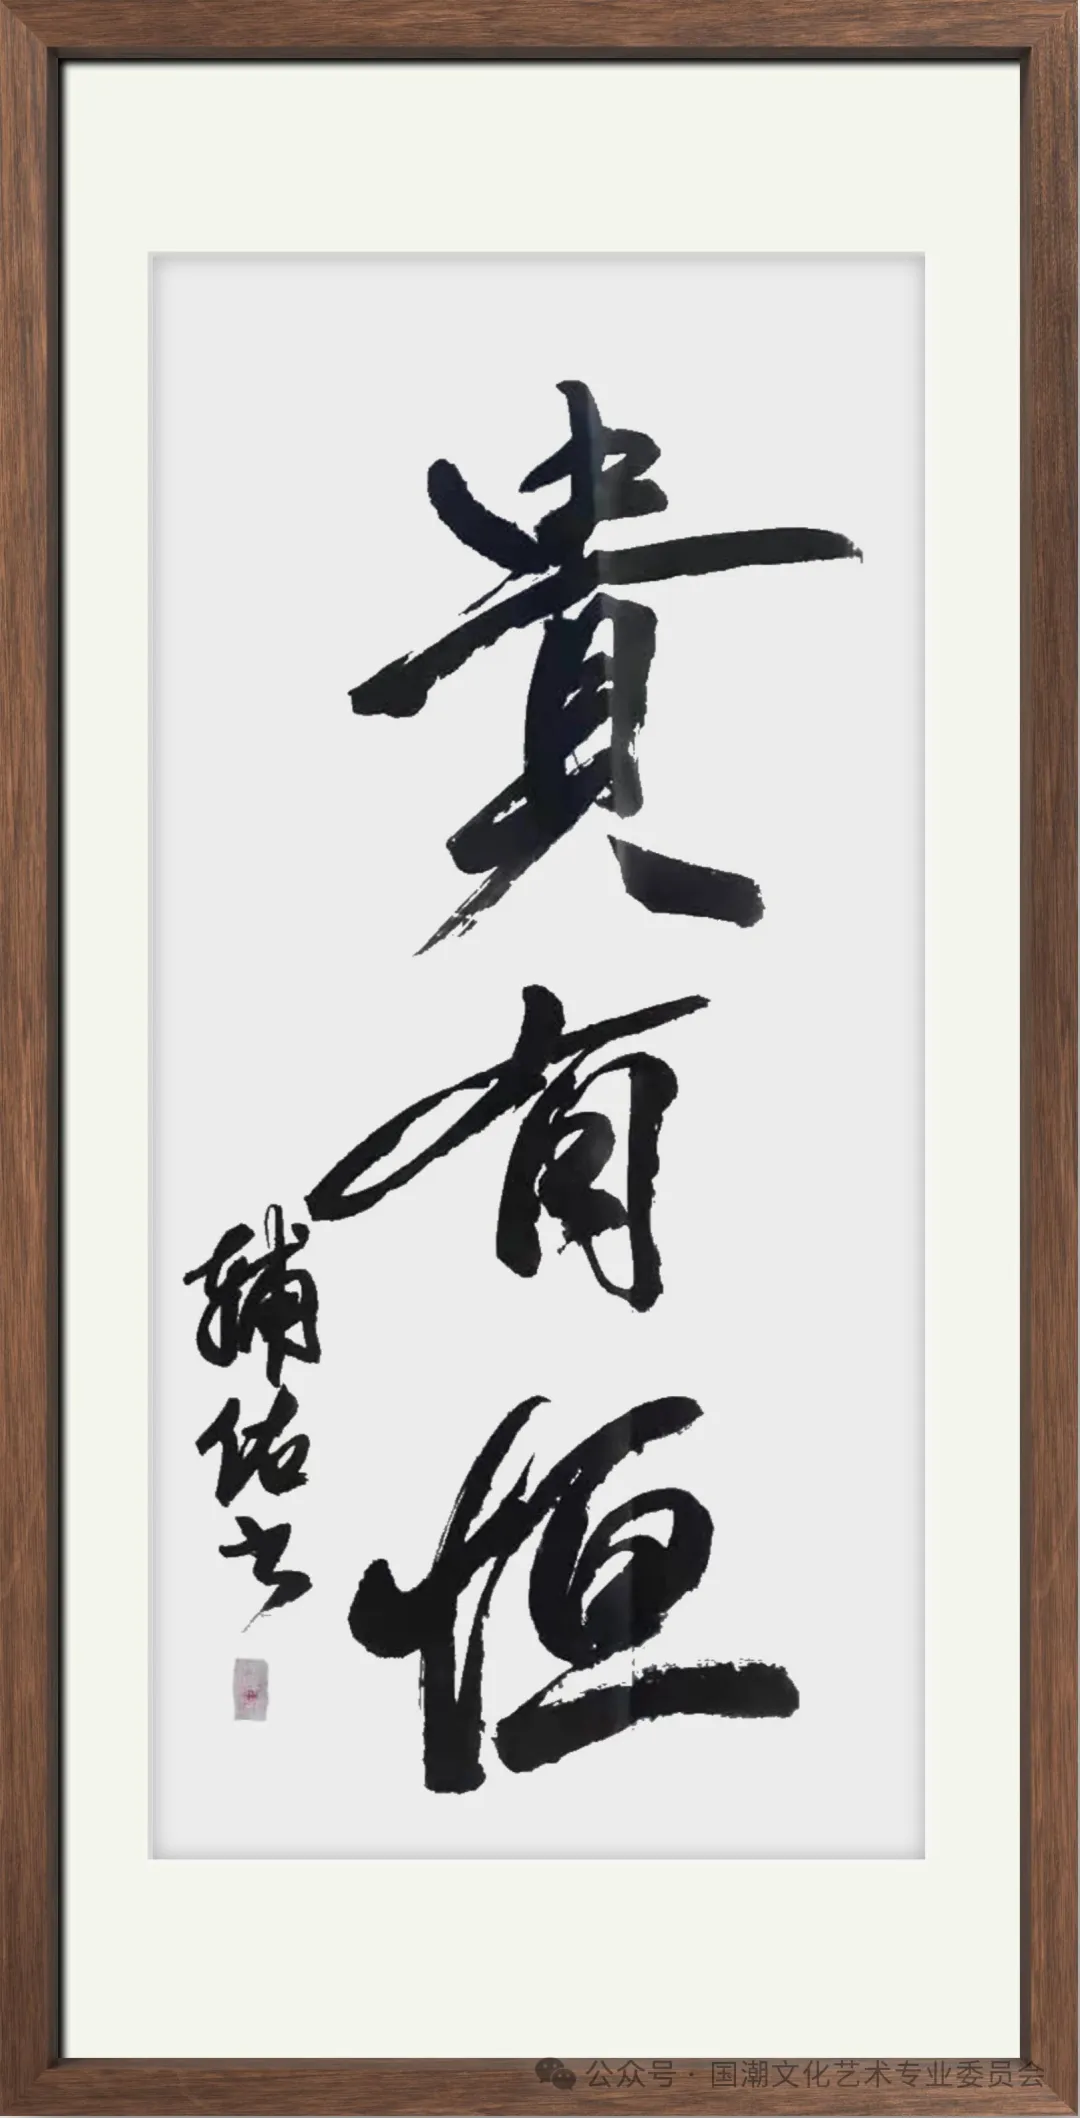 貴有恒
輔佑书
公众号 · 国潮文化艺术专业委员会